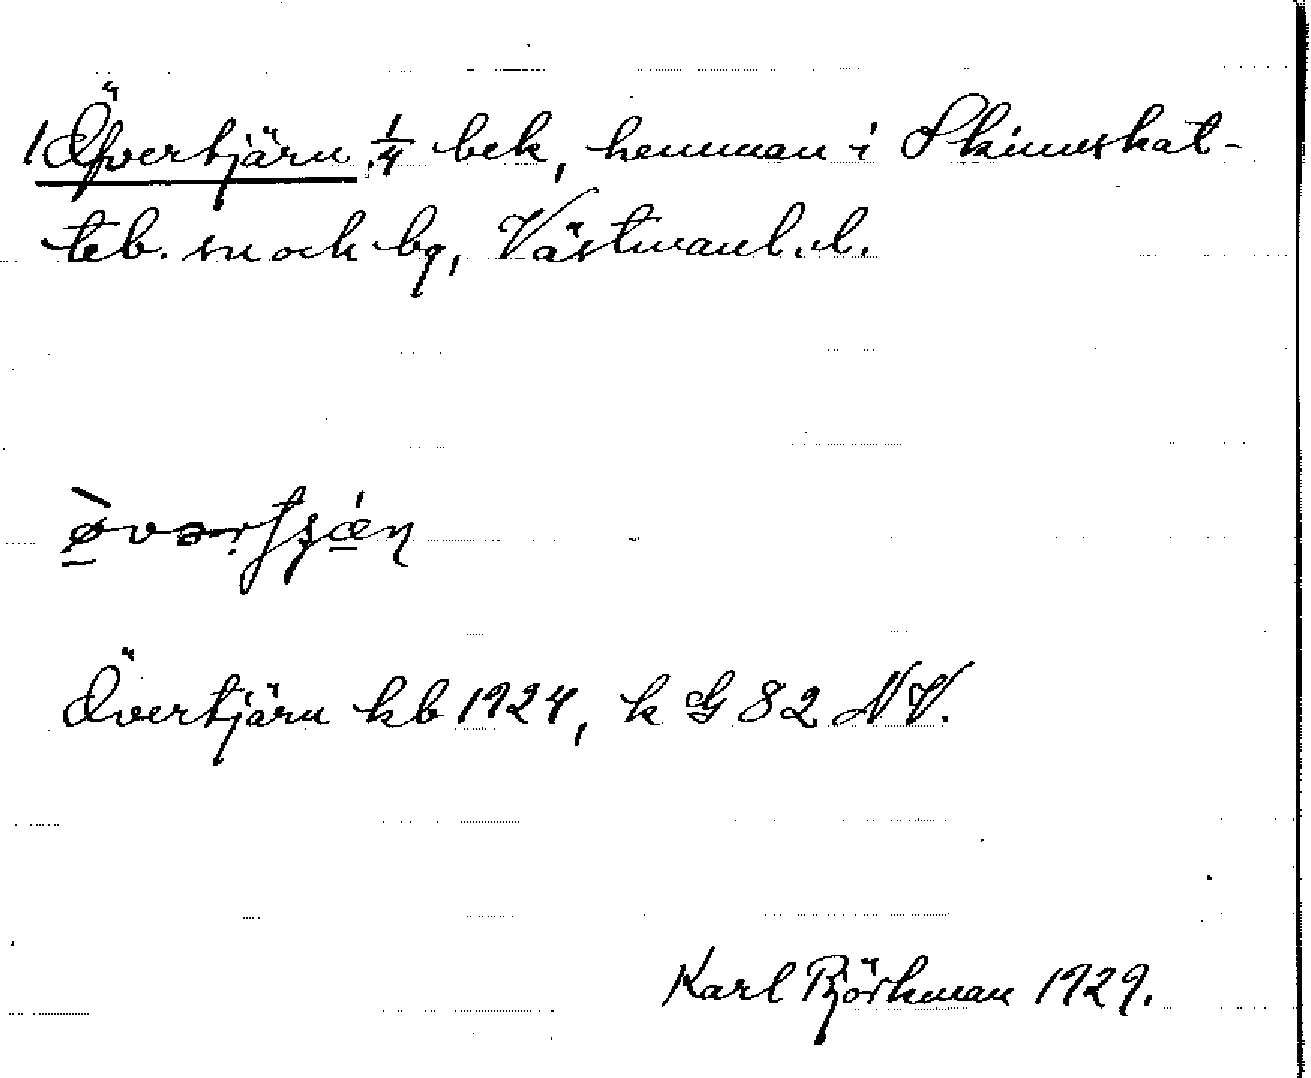 1 Öfvertjärn 1/4 bek, hemman i Skinnskat-
teb. sn och bg, Västmanl. l.
Övertjärn kb 1924, k G 82 NV.
Karl Björkman 1929.